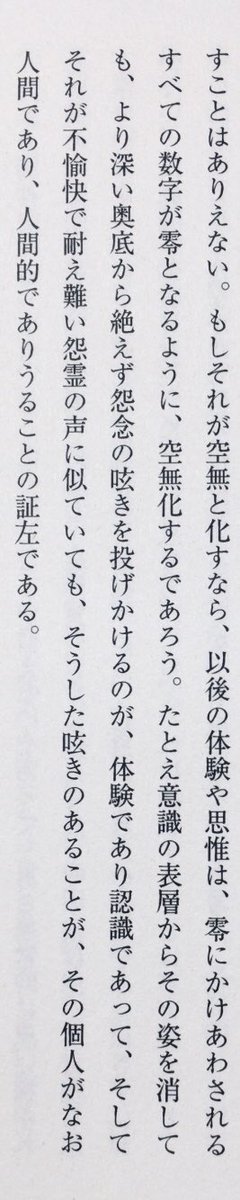 すことはありえない。もしそれが空無と化すなら、以後の体験や思惟は、零にかけあわされる
すべての数字が零となるように、空無化するであろう。たとえ意識の表層からその姿を消して
も、より深い奥底から絶えず怨念の呟きを投げかけるのが、体験であり認識であって、そして
それが不愉快で耐え難い怨霊の声に似ていても、そうした呟きのあることが、その個人がなお
人間であり、人間的でありうることの証左である。